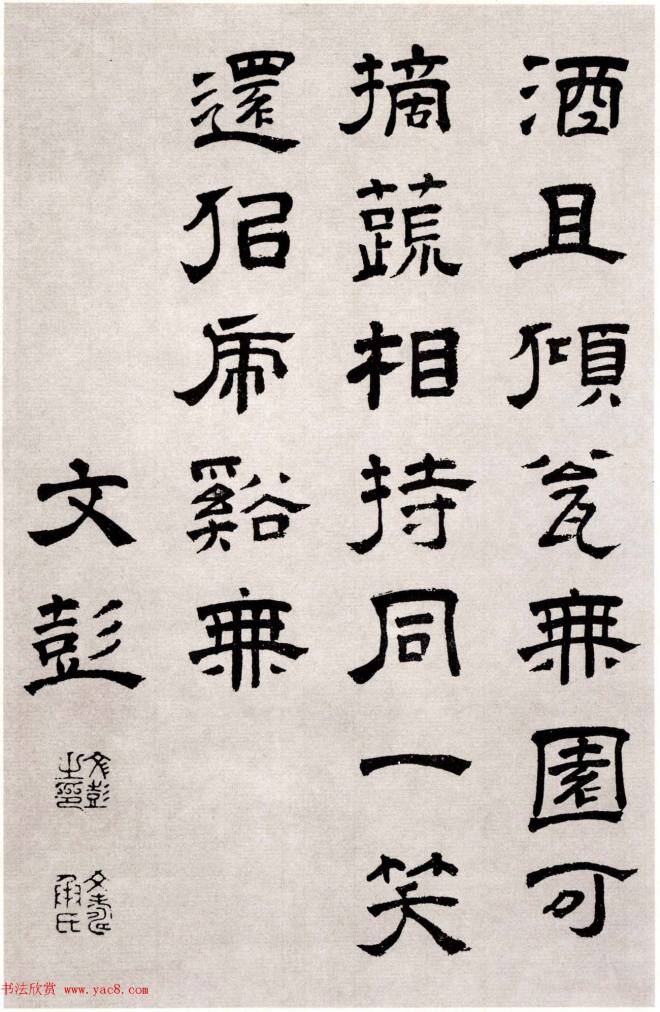 酒且傾瓮無園可
摘蔬相持同一笑
還佀虎谿無
文彭
文彭之印
文壽承氏
书法欣赏 www.yac8.com